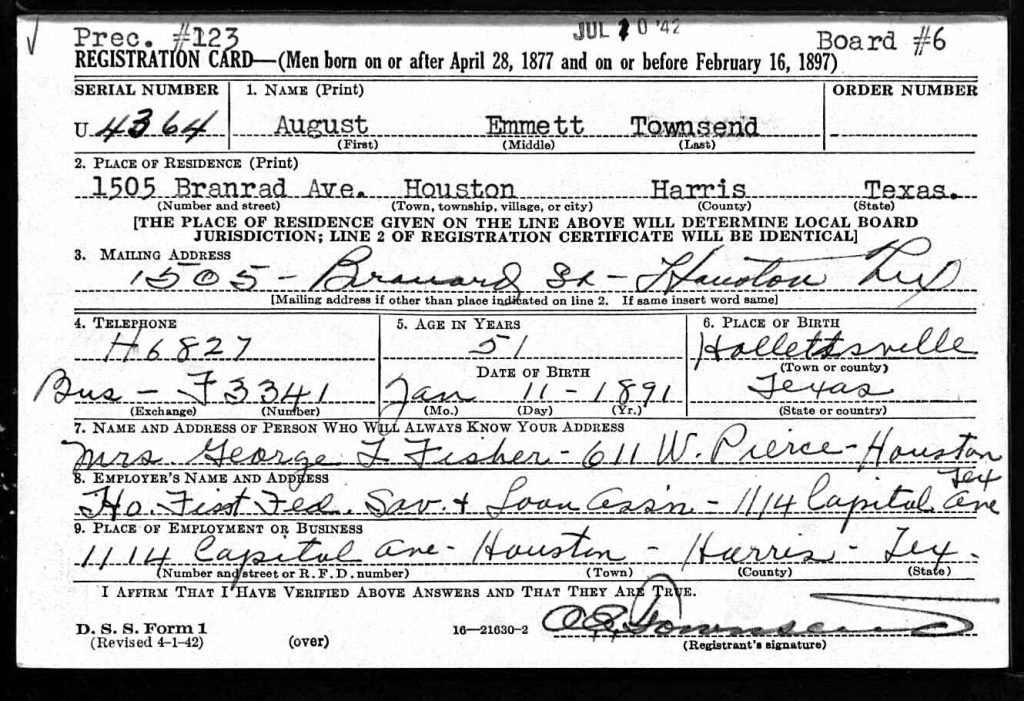 JUL 20 '42
Prec. #123 Board #6
REGISTRATION CARD—(Men born on or after April 28, 1877 and on or before February 16, 1897)
SERIAL NUMBER 1. NAME (Print) ORDER NUMBER
U 4364 August Emmett Townsend
(First) (Middle) (Last)
2. PLACE OF RESIDENCE (Print)
1505 Branrad Ave. Houston Harris Texas.
(Number and street) (Town, township, village, or city) (County) (State)
[THE PLACE OF RESIDENCE GIVEN ON THE LINE ABOVE WILL DETERMINE LOCAL BOARD
JURISDICTION; LINE 2 OF REGISTRATION CERTIFICATE WILL BE IDENTICAL]
3. MAILING ADDRESS
1505 - Branard - Houston Tex
[Mailing address if other than place indicated on line 2. If same insert word same]
4. TELEPHONE 5. AGE IN YEARS 6. PLACE OF BIRTH
H6827 51 Hallettsville
DATE OF BIRTH (Town or county)
Bus - F3341 Jan 11 - 1891 Texas
(Exchange) (Number) (Mo.) (Day) (Yr.) (State or country)
7. NAME AND ADDRESS OF PERSON WHO WILL ALWAYS KNOW YOUR ADDRESS
Mrs. George F Fisher - 611 W. Pierce - Houston
Tex
8. EMPLOYER'S NAME AND ADDRESS
Ho. First Fed. Sav. & Loan Ass'n - 1114 Capitol Ave
9. PLACE OF EMPLOYMENT OR BUSINESS
1114 Capitol Ave - Houston - Harris - Tex.
(Number and street or R. F. D. number) (Town) (County) (State)
I AFFIRM THAT I HAVE VERIFIED ABOVE ANSWERS AND THAT THEY ARE TRUE.
A. E. Townsend
D. S. S. Form 1
(Revised 4-1-42) (over) 16—21630-2 (Registrant's signature)